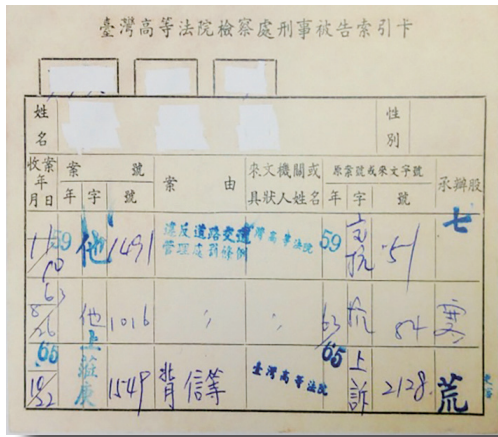 臺灣高等法院檢察處刑事被告索引卡
姓名 性別
收案年月日 案號 年 字 號 案由 來文機關或具狀人姓名 原案號或來文字號 年 字 號 承辦股
11/10 59 他 1491 違反道路交通管理處罰條例 臺灣高等法院 59 抗 51 七
63 8/26 他 1016 〃 〃 63 抗 84
65 10/22 上 莊 庚 1549 背信等 臺灣高等法院 65 上訴 2128 荒